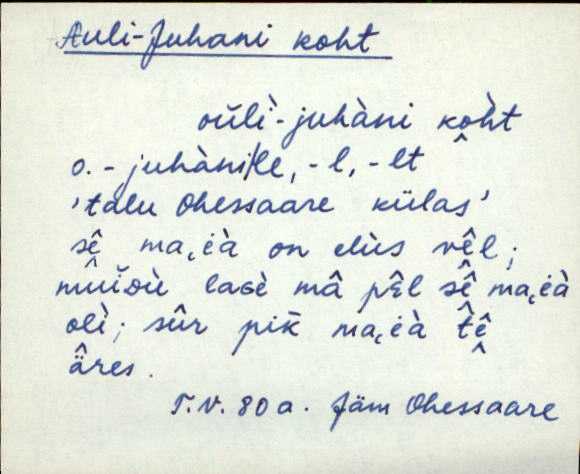 Auli-Juhani koht
oūlì-juhàni kòht
o.-juhàni/le, -l, -lt
'talu Ohessaare külas'
sê on elùs vêl;
lasè mâ sê
olì; sûr pik̄ tê
äres.
T.V. 80 a. Jäm Ohessaare